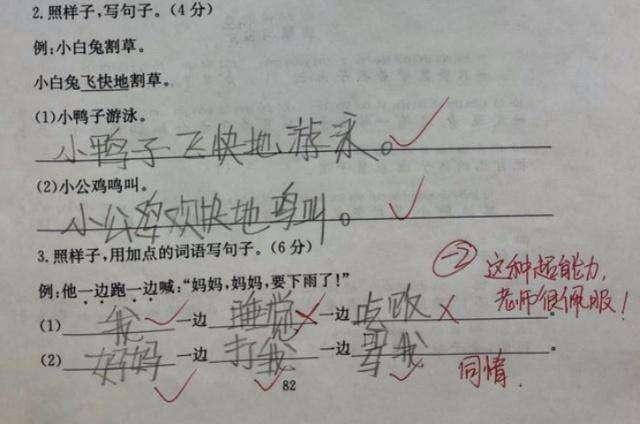 2.照样子,写句子。(4分)
例:小白兔割草。
小白兔飞快地割草。
(1)小鸭子游泳。
小鸭子飞快地游泳。
(2)小公鸡鸣叫。
小公鸡欢快地鸣叫。
3.照样子,用加点的词语写句子。(6分)
-2 这种超能力,
老师很佩服!
例:他一边跑一边喊:“妈妈,妈妈,要下雨了!”
(1) 我 一边 睡觉 一边 走路 。
(2) 妈妈 一边 打我 一边 骂我 。
同情.
82